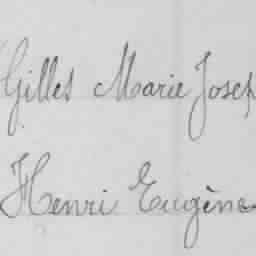 Gilles Marie Joseph
Henri Eugène